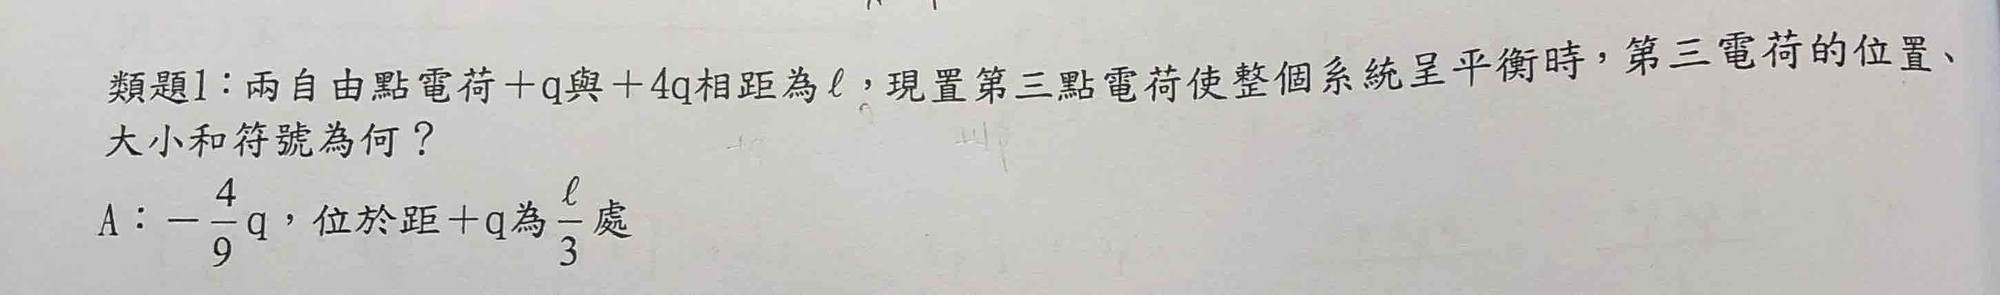 類題1：兩自由點電荷＋q與＋4q相距為ℓ，現置第三點電荷使整個系統呈平衡時，第三電荷的位置、
大小和符號為何？
A：－4/9 q，位於距＋q為 ℓ/3 處